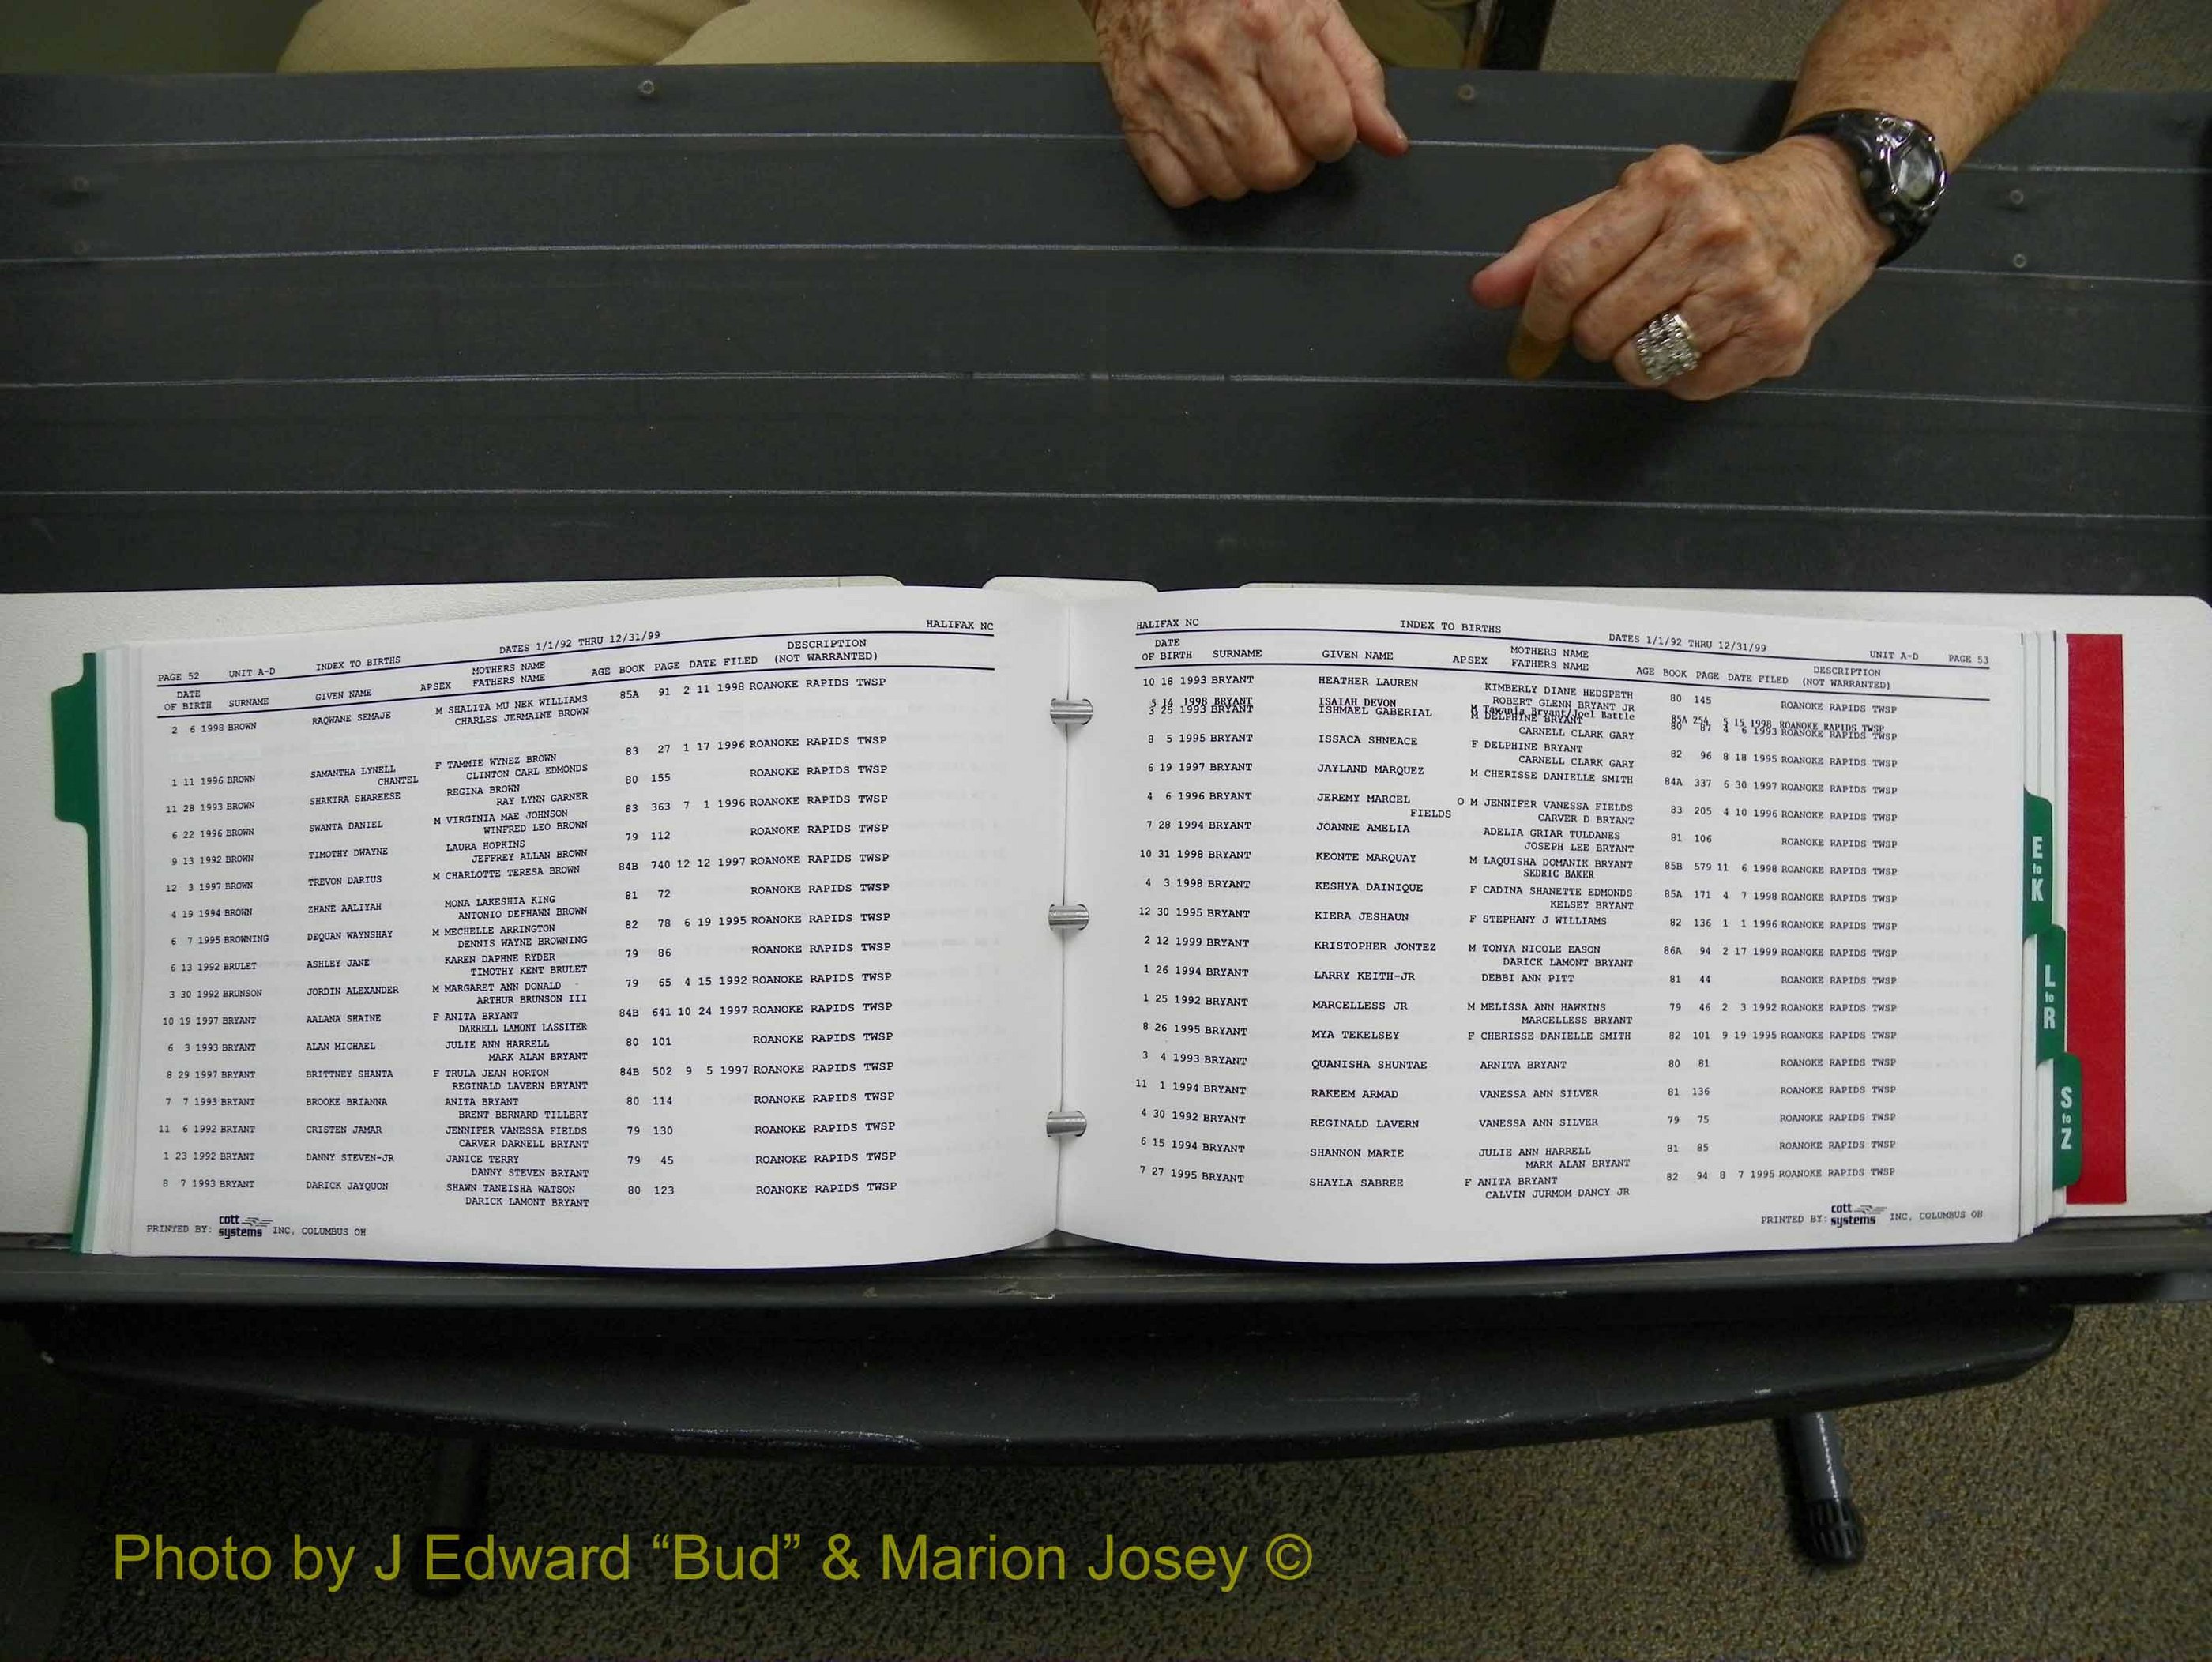 HALIFAX NC
DATES 1/1/92 THRU 12/31/99
PAGE 52 UNIT A-D INDEX TO BIRTHS MOTHERS NAME DESCRIPTION
DATE OF BIRTH SURNAME GIVEN NAME APSEX FATHERS NAME AGE BOOK PAGE DATE FILED (NOT WARRANTED)
2 6 1998 BROWN RAQWANE SEMAJE M SHALITA MU NEK WILLIAMS 85A 91 2 11 1998 ROANOKE RAPIDS TWSP
CHARLES JERMAINE BROWN
1 11 1996 BROWN SAMANTHA LYNELL F TAMMIE WYNEZ BROWN 83 27 1 17 1996 ROANOKE RAPIDS TWSP
CHANTEL CLINTON CARL EDMONDS
11 28 1993 BROWN SHAKIRA SHAREESE REGINA BROWN 80 155 ROANOKE RAPIDS TWSP
RAY LYNN GARNER
6 22 1996 BROWN SWANTA DANIEL M VIRGINIA MAE JOHNSON 83 363 7 1 1996 ROANOKE RAPIDS TWSP
WINFRED LEO BROWN
9 13 1992 BROWN TIMOTHY DWAYNE LAURA HOPKINS 79 112 ROANOKE RAPIDS TWSP
JEFFREY ALLAN BROWN
12 3 1997 BROWN TREVON DARIUS M CHARLOTTE TERESA BROWN 84B 740 12 12 1997 ROANOKE RAPIDS TWSP
4 19 1994 BROWN ZHANE AALIYAH MONA LAKESHIA KING 81 72 ROANOKE RAPIDS TWSP
ANTONIO DEFHAWN BROWN
6 7 1995 BROWNING DEQUAN WAYNSHAY M MECHELLE ARRINGTON 82 78 6 19 1995 ROANOKE RAPIDS TWSP
DENNIS WAYNE BROWNING
6 13 1992 BRULET ASHLEY JANE KAREN DAPHNE RYDER 79 86 ROANOKE RAPIDS TWSP
TIMOTHY KENT BRULET
3 30 1992 BRUNSON JORDIN ALEXANDER M MARGARET ANN DONALD 79 65 4 15 1992 ROANOKE RAPIDS TWSP
ARTHUR BRUNSON III
10 19 1997 BRYANT AALANA SHAINE F ANITA BRYANT 84B 641 10 24 1997 ROANOKE RAPIDS TWSP
DARRELL LAMONT LASSITER
6 3 1993 BRYANT ALAN MICHAEL JULIE ANN HARRELL 80 101 ROANOKE RAPIDS TWSP
MARK ALAN BRYANT
8 29 1997 BRYANT BRITTNEY SHANTA F TRULA JEAN HORTON 84B 502 9 5 1997 ROANOKE RAPIDS TWSP
REGINALD LAVERN BRYANT
7 7 1993 BRYANT BROOKE BRIANNA ANITA BRYANT 80 114 ROANOKE RAPIDS TWSP
BRENT BERNARD TILLERY
11 6 1992 BRYANT CRISTEN JAMAR JENNIFER VANESSA FIELDS 79 130 ROANOKE RAPIDS TWSP
CARVER DARNELL BRYANT
1 23 1992 BRYANT DANNY STEVEN-JR JANICE TERRY 79 45 ROANOKE RAPIDS TWSP
DANNY STEVEN BRYANT
8 7 1993 BRYANT DARICK JAYQUON SHAWN TANEISHA WATSON 80 123 ROANOKE RAPIDS TWSP
DARICK LAMONT BRYANT
PRINTED BY: cott systems INC, COLUMBUS OH
HALIFAX NC INDEX TO BIRTHS DATES 1/1/92 THRU 12/31/99 UNIT A-D PAGE 53
DATE OF BIRTH SURNAME GIVEN NAME APSEX MOTHERS NAME FATHERS NAME AGE BOOK PAGE DATE FILED DESCRIPTION (NOT WARRANTED)
10 18 1993 BRYANT HEATHER LAUREN KIMBERLY DIANE HEDSPETH 80 145 ROANOKE RAPIDS TWSP
ROBERT GLENN BRYANT JR
5 14 1998 BRYANT ISAIAH DEVON M Tawania Bryant/Joel Battle 85A 254 5 15 1998 ROANOKE RAPIDS TWSP
3 25 1993 BRYANT ISHMAEL GABERIAL M DELPHINE BRYANT 80 87 4 6 1993 ROANOKE RAPIDS TWSP
CARNELL CLARK GARY
8 5 1995 BRYANT ISSACA SHNEACE F DELPHINE BRYANT 82 96 8 18 1995 ROANOKE RAPIDS TWSP
CARNELL CLARK GARY
6 19 1997 BRYANT JAYLAND MARQUEZ M CHERISSE DANIELLE SMITH 84A 337 6 30 1997 ROANOKE RAPIDS TWSP
4 6 1996 BRYANT JEREMY MARCEL O M JENNIFER VANESSA FIELDS 83 205 4 10 1996 ROANOKE RAPIDS TWSP
FIELDS CARVER D BRYANT
7 28 1994 BRYANT JOANNE AMELIA ADELIA GRIAR TULDANES 81 106 ROANOKE RAPIDS TWSP
JOSEPH LEE BRYANT
10 31 1998 BRYANT KEONTE MARQUAY M LAQUISHA DOMANIK BRYANT 85B 579 11 6 1998 ROANOKE RAPIDS TWSP
SEDRIC BAKER
4 3 1998 BRYANT KESHYA DAINIQUE F CADINA SHANETTE EDMONDS 85A 171 4 7 1998 ROANOKE RAPIDS TWSP
KELSEY BRYANT
12 30 1995 BRYANT KIERA JESHAUN F STEPHANY J WILLIAMS 82 136 1 1 1996 ROANOKE RAPIDS TWSP
2 12 1999 BRYANT KRISTOPHER JONTEZ M TONYA NICOLE EASON 86A 94 2 17 1999 ROANOKE RAPIDS TWSP
DARICK LAMONT BRYANT
1 26 1994 BRYANT LARRY KEITH-JR DEBBI ANN PITT 81 44 ROANOKE RAPIDS TWSP
1 25 1992 BRYANT MARCELLESS JR M MELISSA ANN HAWKINS 79 46 2 3 1992 ROANOKE RAPIDS TWSP
MARCELLESS BRYANT
8 26 1995 BRYANT MYA TEKELSEY F CHERISSE DANIELLE SMITH 82 101 9 19 1995 ROANOKE RAPIDS TWSP
3 4 1993 BRYANT QUANISHA SHUNTAE ARNITA BRYANT 80 81 ROANOKE RAPIDS TWSP
11 1 1994 BRYANT RAKEEM ARMAD VANESSA ANN SILVER 81 136 ROANOKE RAPIDS TWSP
4 30 1992 BRYANT REGINALD LAVERN VANESSA ANN SILVER 79 75 ROANOKE RAPIDS TWSP
6 15 1994 BRYANT SHANNON MARIE JULIE ANN HARRELL 81 85 ROANOKE RAPIDS TWSP
MARK ALAN BRYANT
7 27 1995 BRYANT SHAYLA SABREE F ANITA BRYANT 82 94 8 7 1995 ROANOKE RAPIDS TWSP
CALVIN JURMOM DANCY JR
PRINTED BY: cott systems INC, COLUMBUS OH
E to K
L to R
S to Z
Photo by J Edward “Bud” & Marion Josey ©